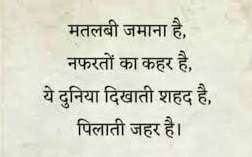 मतलबी जमाना है,
नफरतों का कहर है,
ये दुनिया दिखाती शहद है,
पिलाती जहर है।